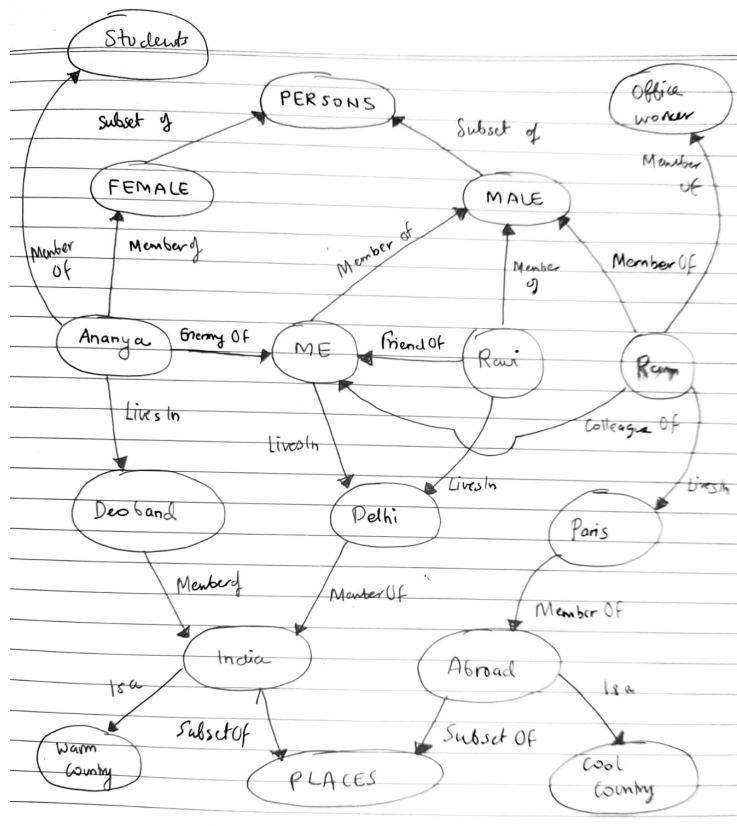 Students
PERSONS
Office
worker
Subset of
Subset of
Member
Of
FEMALE
MALE
Member
Of
Member of
Member of
Member
of
Member Of
Ananya
Enemy Of
ME
Friend Of
Ravi
Ram
Lives In
LivesIn
Colleague Of
LivesIn
LivesIn
Deoband
Delhi
Paris
Member of
Member Of
Member Of
India
Abroad
Is a
Is a
Subset Of
Subset Of
Warm
Country
PLACES
Cool
Country